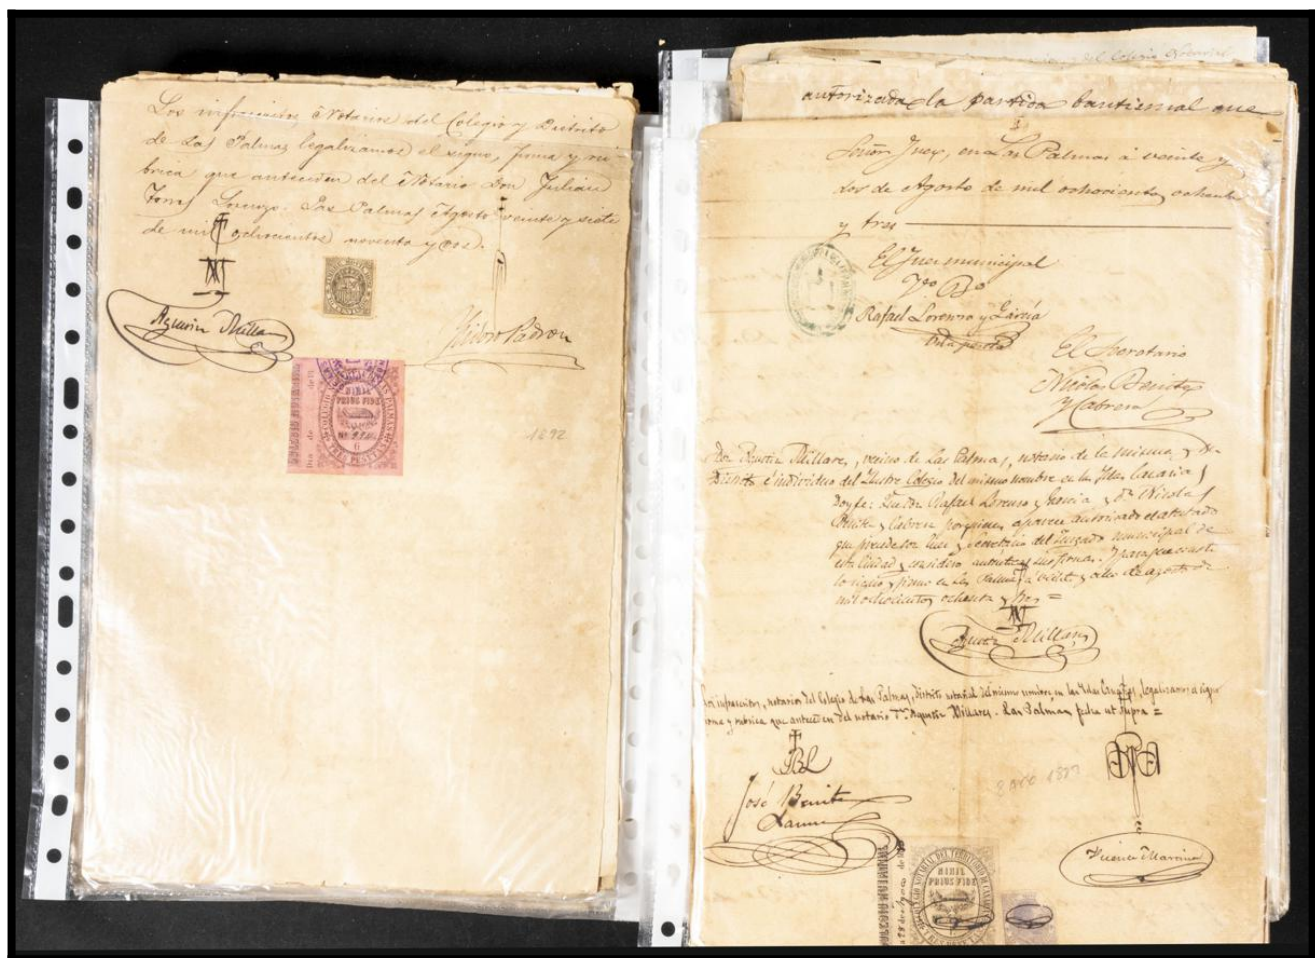 Los infrascritos Notarios del Colegio y Distrito
de Las Palmas legalizamos el signo, firma y rú
brica que anteceden del Notario Don Julian
Torres Lorenzo. Las Palmas Agosto veinte y siete
de mil ochocientos noventa y dos.
Agustin Millares
Isidoro Padron
COLEGIO NOTARIAL
NIHIL
PRIUS FIDE
TRES PESETAS
1892
del Colegio Notarial
autorizada la partida bautismal que
Señor Juez, en Las Palmas á veinte y
dos de Agosto de mil ochocientos ochenta
y tres
El Juez municipal
Vto Bo
Rafael Lorenzo y García
Una peseta
El Secretario
Nicolas Benitez
y Cabrera
Don Agustin Millares, vecino de Las Palmas, notario de la misma y su
Distrito é individuo del Ilustre Colegio del mismo nombre en las Islas Canarias
Doy fe: Que Don Rafael Lorenzo y Garcia y Dn Nicolas
Benitez y Cabrera por quienes aparece autorizado el atestado
que precede son Juez y Secretario del Juzgado municipal de
esta Ciudad y considero autenticas sus firmas. Y para que conste
lo signo y firmo en Las Palmas á veinte y ocho de agosto de
mil ochocientos ochenta y tres =
Agustin Millares
Los infrascritos, notarios del Colegio de Las Palmas, distrito notarial del mismo nombre en las Islas Canarias, legalizamos el signo
firma y rubrica que anteceden del notario Dn Agustin Millares. Las Palmas, fecha ut supra =
José Benitez
Larena
Vicente Martinez
COLEGIO NOTARIAL DEL TERRITORIO DE CANARIAS
NIHIL
PRIUS FIDE
TRES PESETAS